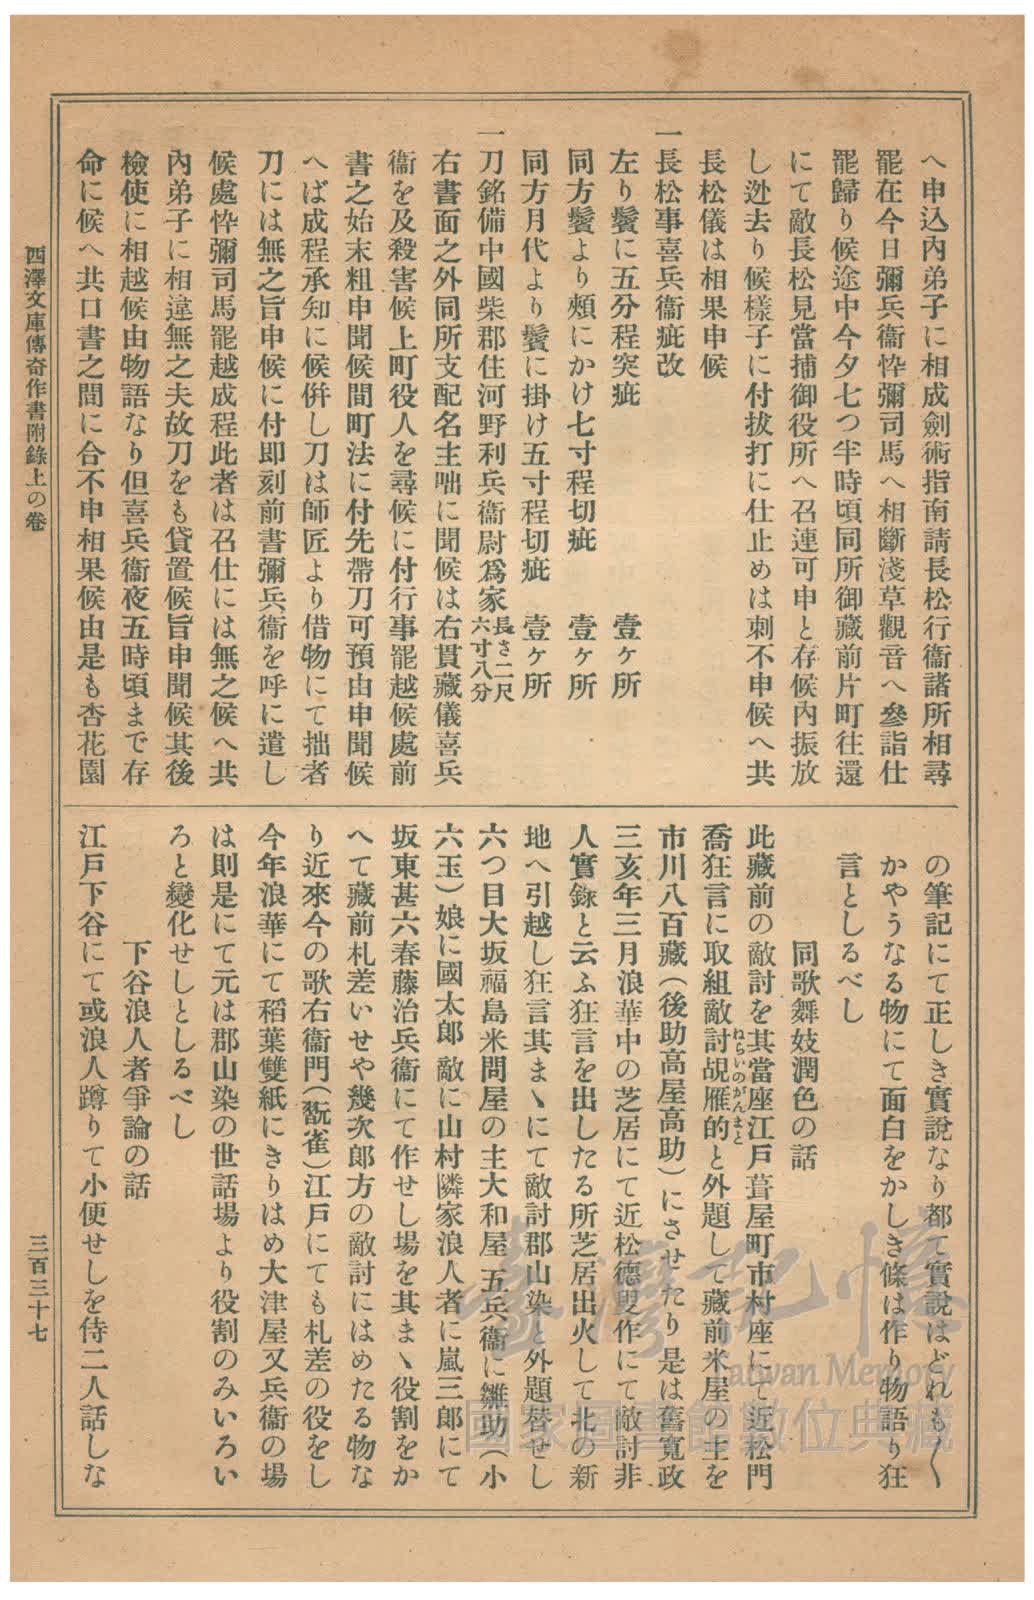 へ申込內弟子に相成劍術指南請長松行衞諸所相尋
罷在今日彌兵衞悴彌司馬へ相斷淺草觀音へ參詣仕
罷歸り候途中今夕七つ半時頃同所御藏前片町往還
にて敵長松見當捕御役所へ召連可申と存候內振放
し迯去り候樣子に付拔打に仕止めは刺不申候へ共
長松儀は相果申候
一長松事喜兵衞疵改
左り鬢に五分程突疵 壹ヶ所
同方鬢より頰にかけ七寸程切疵 壹ヶ所
同方月代より鬢に掛け五寸程切疵 壹ヶ所
一刀銘備中國柴郡住河野利兵衞尉爲家長さ二尺六寸八分
右書面之外同所支配名主咄に聞候は右貫藏儀喜兵
衞を及殺害候上町役人を尋候に付行事罷越候處前
書之始末粗申聞候間町法に付先帶刀可預由申聞候
へば成程承知に候倂し刀は師匠より借物にて拙者
刀には無之旨申候に付即刻前書彌兵衞を呼に遣し
候處悴彌司馬罷越成程此者は召仕には無之候へ共
內弟子に相違無之夫故刀をも貸置候旨申聞候其後
檢使に相越候由物語なり但喜兵衞夜五時頃まで存
命に候へ共口書之間に合不申相果候由是も杏花園
の筆記にて正しき實說なり都て實說はどれも〱
かやうなる物にて面白をかしき條は作り物語り狂
言としるべし
同歌舞妓潤色の話
此藏前の敵討を其當座江戶葺屋町市村座にて近松門
喬狂言に取組敵討覘雁的と外題して藏前米屋の主を
ねらいのがんまと
市川八百藏(後助高屋高助)にさせたり是は舊寬政
三亥年三月浪華中の芝居にて近松德叟作にて敵討非
人實錄と云ふ狂言を出したる所芝居出火して北の新
地へ引越し狂言其まゝにて敵討郡山染と外題替せし
六つ目大坂福島米問屋の主大和屋五兵衞に雛助(小
六玉)娘に國太郞敵に山村隣家浪人者に嵐三郞にて
坂東甚六春藤治兵衞にて作せし場を其まゝ役割をか
へて藏前札差いせや幾次郞方の敵討にはめたる物な
り近來今の歌右衞門(翫雀)江戶にても札差の役をし
今年浪華にて稻葉雙紙にきりはめ大津屋又兵衞の場
は則是にて元は郡山染の世話場より役割のみいろい
ろと變化せしとしるべし
下谷浪人者爭論の話
江戶下谷にて或浪人蹲りて小便せしを侍二人話しな
西澤文庫傳奇作書附錄上の卷
三百三十七
臺灣記憶
Taiwan Memory
國家圖書館數位典藏